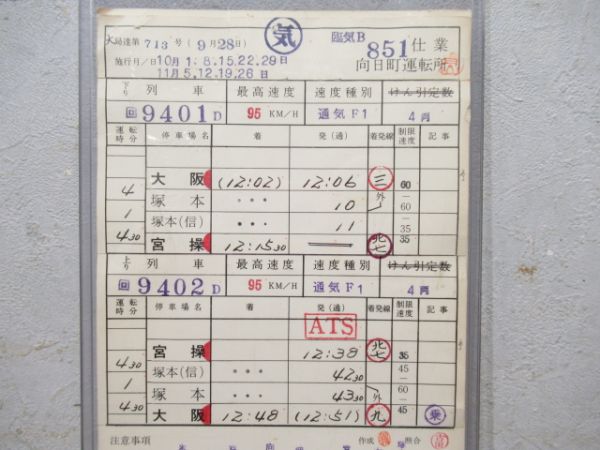 気
大局達第713号(9月28日)
臨気B 851仕業
施行月/日10月1.8.15.22.29日
11月5.12.19.26日
向日町運転所
下り 列車 最高速度 速度種別 けん引定数
回9401D 95 KM/H 通気F1 4両
運転時分 停車場名 着 発(通) 着発線 制限速度 記事
大阪 (12:02) 12:06 三 60
4 外
塚本 ・・・ 10 60
1
塚本(信) ・・・ 11 35
4 30
宮操 12:15 30 北七 35
上り 列車 最高速度 速度種別 けん引定数
回9402D 95 KM/H 通気F1 4両
運転時分 停車場名 着 発(通) 着発線 制限速度 記事
ATS
宮操 12:38 北七 35
4 30
塚本(信) ・・・ 42 30 45
1 外 60
塚本 ・・・ 43 30
4 30
大阪 12:48 (12:51) 九 45 乗
注意事項 作成 照合